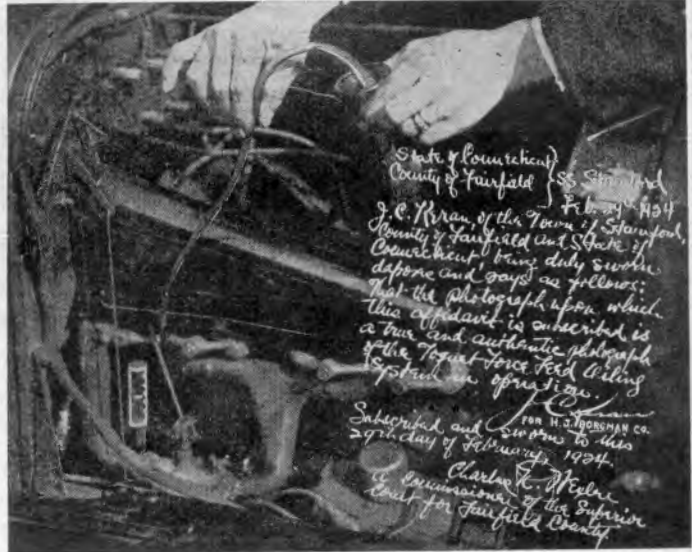 State of Connecticut
County of Fairfield } SS. Stamford
Feb. 29th 1924
J. C. of the Town of Stamford,
County of Fairfield and State of
Connecticut, being duly sworn
depose and says as follows:
That the photograph upon which
this affidavit is subscribed is
a true and authentic photograph
of the Toquet Force Feed Oiling
System in operation.
FOR H.J. BORGMAN CO.
Subscribed and sworn to this
29th day of February, 1924.
Charles
A Commissioner of the Superior
Court for Fairfield County